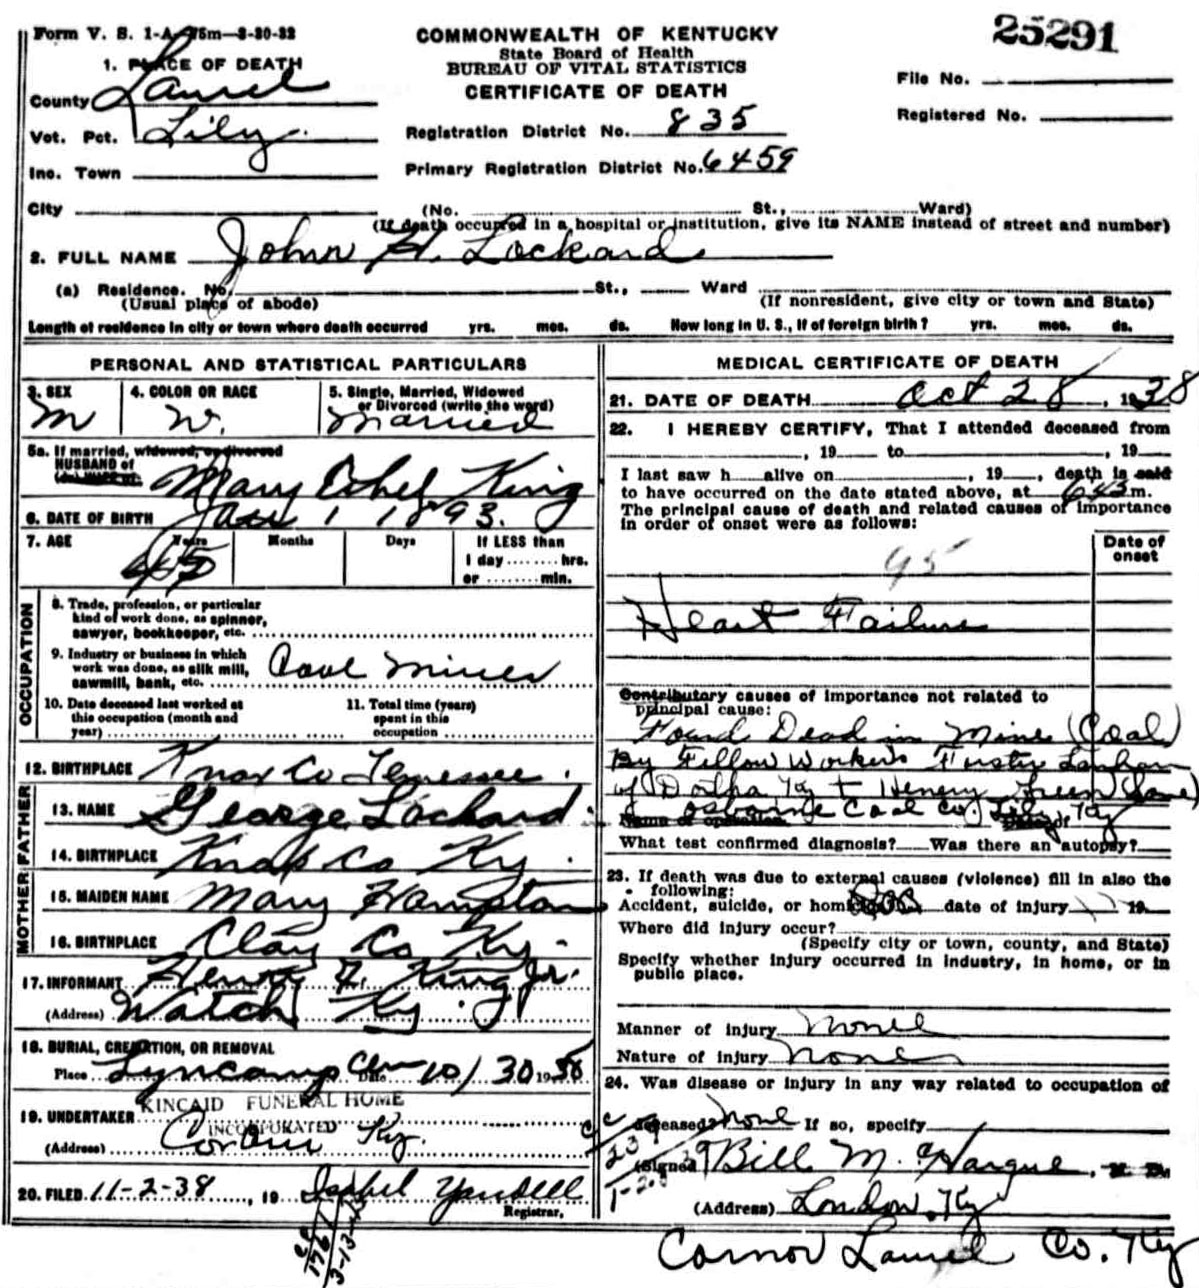 Form V. S. 1-A 75m—8-30-32
COMMONWEALTH OF KENTUCKY
State Board of Health
BUREAU OF VITAL STATISTICS
CERTIFICATE OF DEATH
25291
File No.
Registered No.
1. PLACE OF DEATH
County Laurel
Vot. Pct. Lily
Inc. Town
City
Registration District No. 835
Primary Registration District No. 6459
(No. St., Ward)
(If death occurred in a hospital or institution, give its NAME instead of street and number)
2. FULL NAME John H. Lockard
(a) Residence. No. St., Ward
(Usual place of abode) (If nonresident, give city or town and State)
Length of residence in city or town where death occurred yrs. mos. ds. How long in U. S., if of foreign birth? yrs. mos. ds.
PERSONAL AND STATISTICAL PARTICULARS
3. SEX 4. COLOR OR RACE 5. Single, Married, Widowed
or Divorced (write the word)
M W. Married
5a. If married, widowed, or divorced
HUSBAND of
(or) WIFE of Mary Ethel King
6. DATE OF BIRTH Jan 1 1893.
7. AGE Years Months Days If LESS than
1 day hrs.
or min.
45
OCCUPATION
8. Trade, profession, or particular
kind of work done, as spinner,
sawyer, bookkeeper, etc.
9. Industry or business in which
work was done, as silk mill,
sawmill, bank, etc. Coal Mines
10. Date deceased last worked at
this occupation (month and
year)
11. Total time (years)
spent in this
occupation
12. BIRTHPLACE Knox Co Tennessee.
FATHER
13. NAME George Lockard.
14. BIRTHPLACE Knox Co Ky.
MOTHER
15. MAIDEN NAME Mary Hampton
16. BIRTHPLACE Clay Co Ky.
17. INFORMANT Henry King Jr.
(Address) Watch Ky.
18. BURIAL, CREMATION, OR REMOVAL
Place Lyncamp Cem Date 10/30 19 38
19. UNDERTAKER KINCAID FUNERAL HOME
INCORPORATED
(Address) Corbin Ky.
20. FILED 11-2-38, 19 Isabel Yandell
Registrar.
MEDICAL CERTIFICATE OF DEATH
21. DATE OF DEATH Oct 28, 1938
22. I HEREBY CERTIFY, That I attended deceased from
, 19 to , 19
I last saw h alive on , 19 , death is said
to have occurred on the date stated above, at m.
The principal cause of death and related causes of importance
in order of onset were as follows:
Date of
onset
95
Heart Failure
Contributory causes of importance not related to
principal cause:
Found Dead in Mine (Coal)
By Fellow Workers
of Ky + Green
of Osborne Coal Co. Lily Ky
Name of operation Date of
What test confirmed diagnosis? Was there an autopsy?
23. If death was due to external causes (violence) fill in also the
following:
Accident, suicide, or homicide date of injury 19
Where did injury occur?
(Specify city or town, county, and State)
Specify whether injury occurred in industry, in home, or in
public place.
Manner of injury None
Nature of injury None
24. Was disease or injury in any way related to occupation of
deceased? None If so, specify
(Signed) Bill M. Hargue, M. D.
(Address) London, Ky
Cornor Laurel Co. Ky